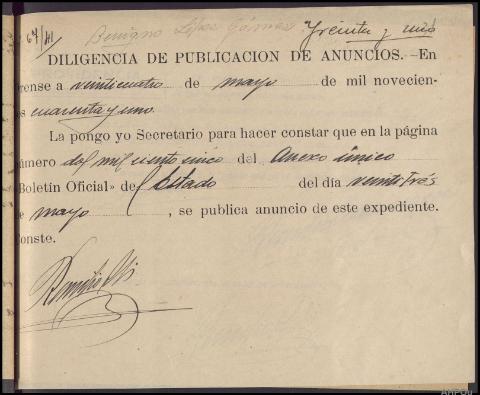 67/41 Benigno López Gómez Treinta y uno
DILIGENCIA DE PUBLICACION DE ANUNCIOS.—En
rense a veinticuatro de mayo de mil novecien-
os cuarenta y uno.
La pongo yo Secretario para hacer constar que en la página
úmero dos mil ciento cinco del Anexo único
Boletín Oficial» de Estado del día veintitrés
e mayo, se publica anuncio de este expediente.
onste.